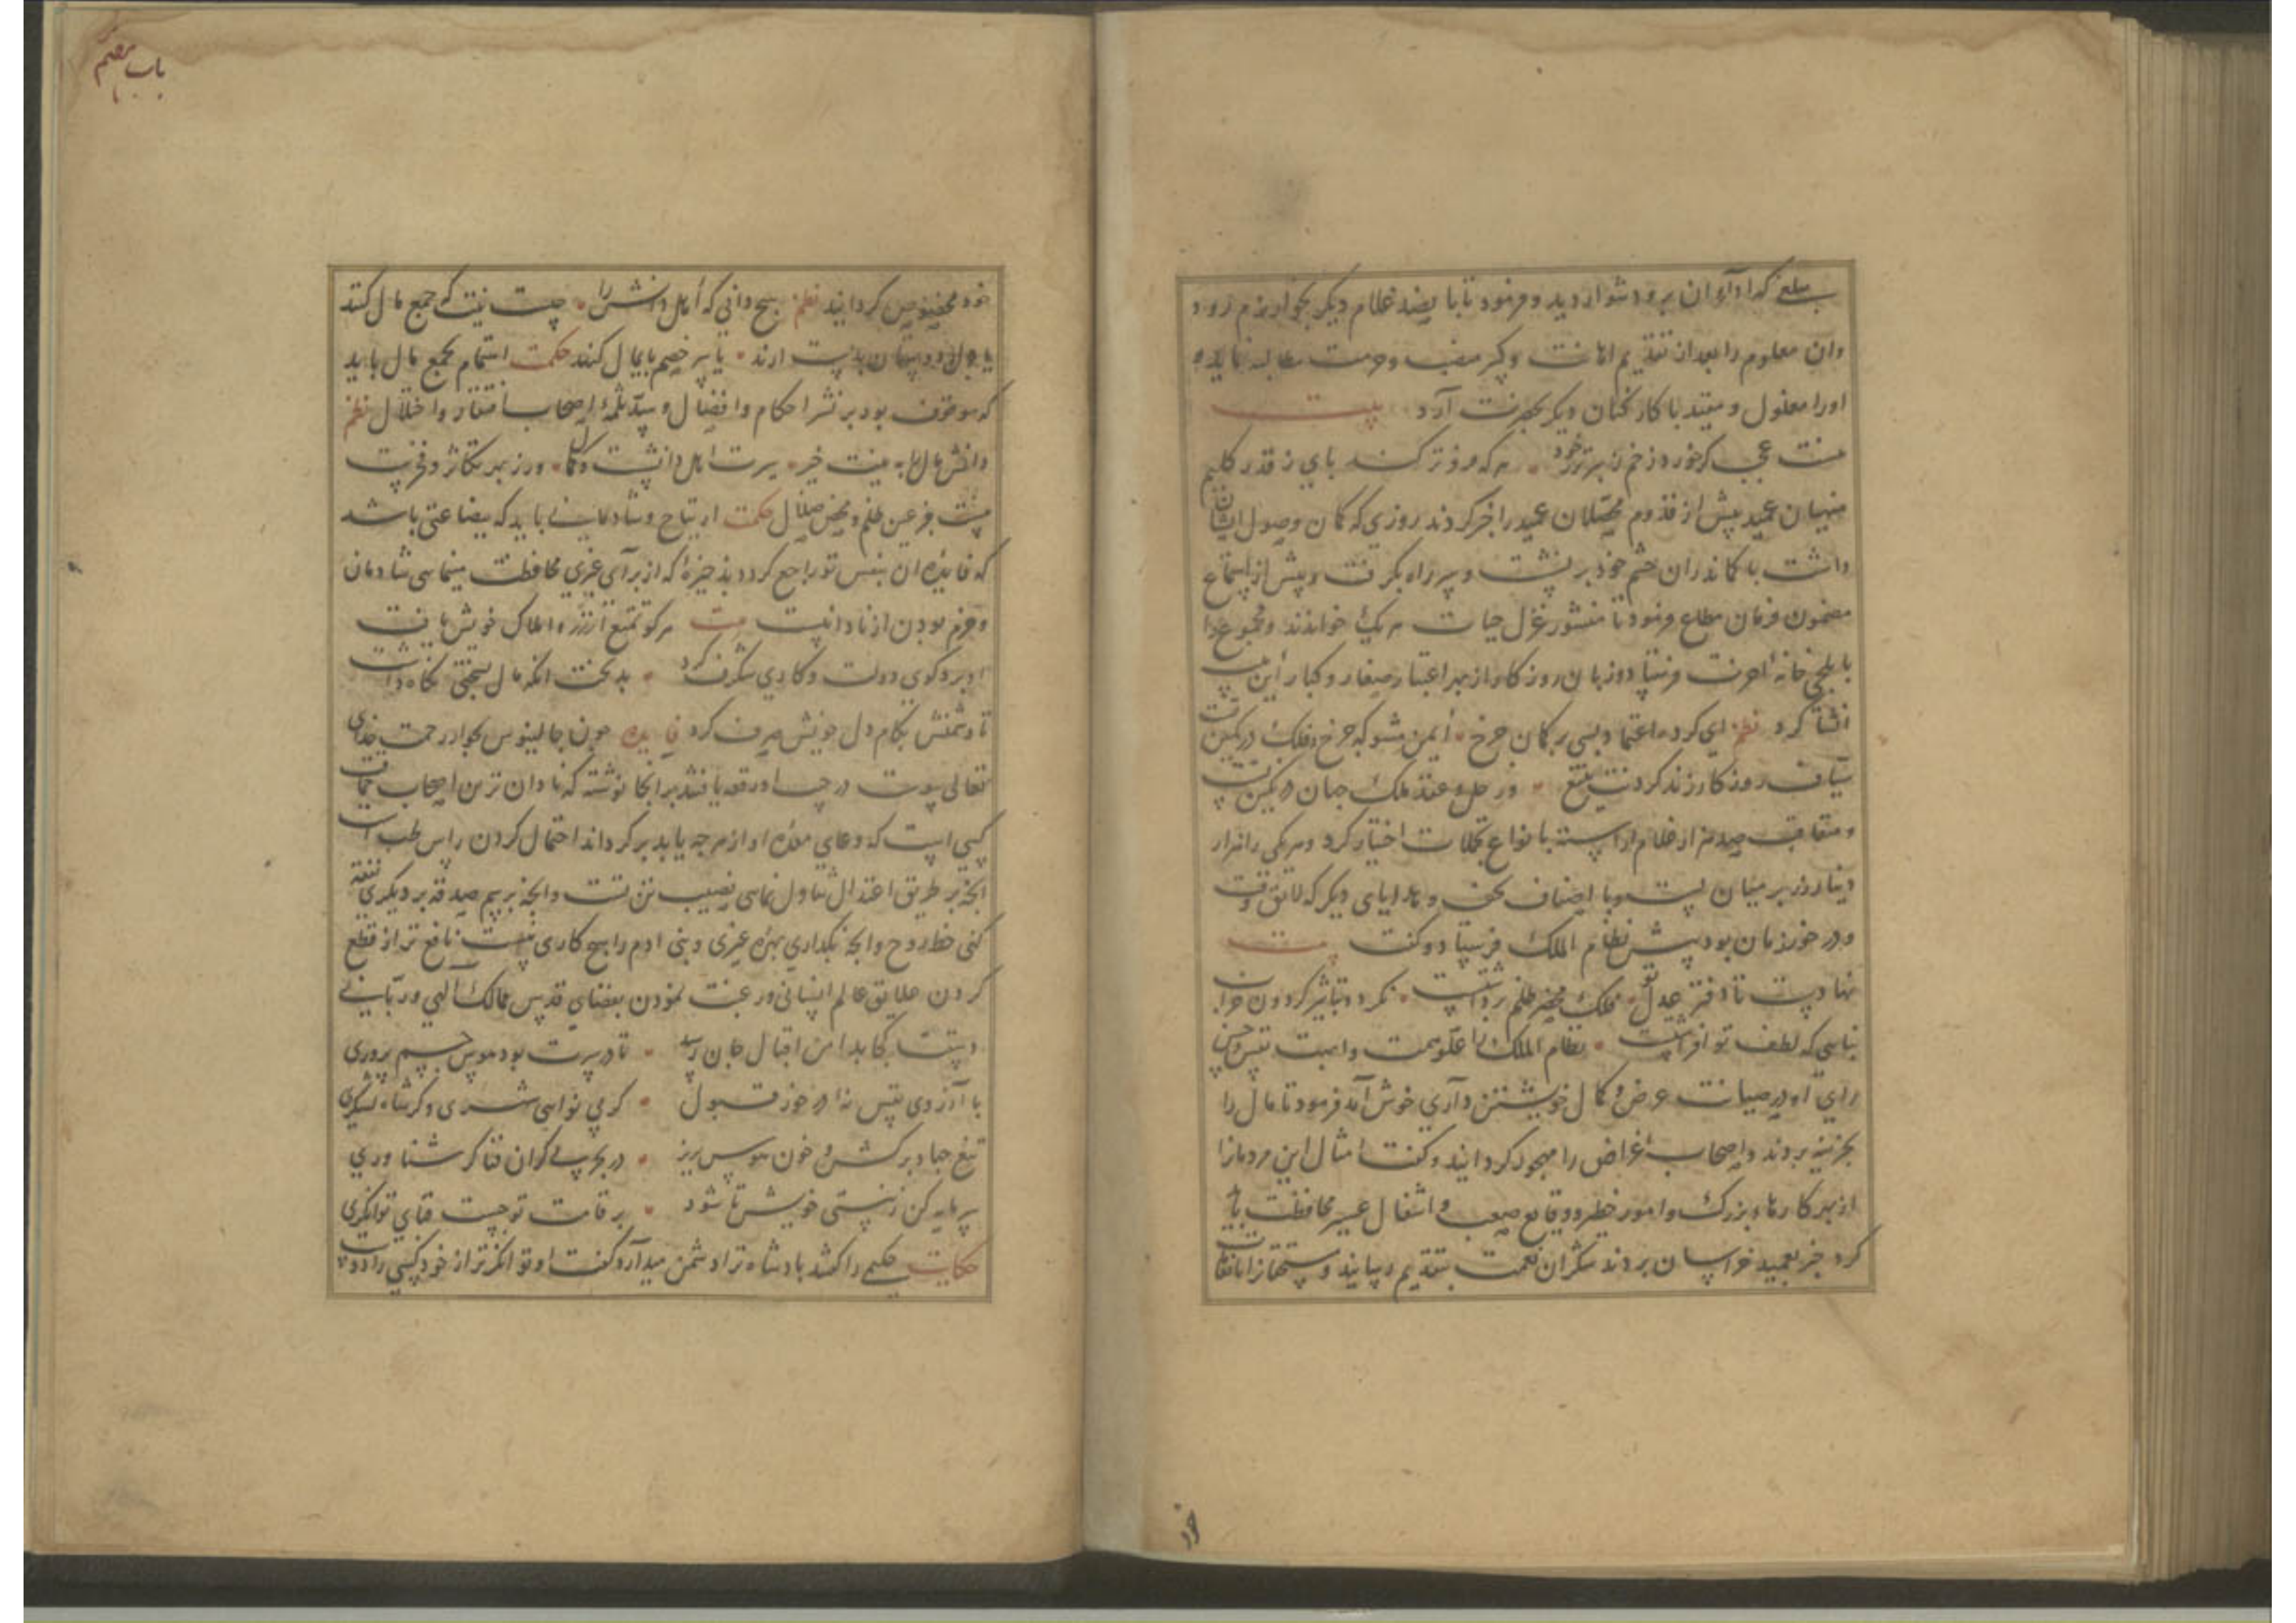 مبلغ که ادآء ان برو دشوار دید و فرمود تا با پصد غلام دیکر بخوارزم رود
وان معلوم را بعد از تقدیم اهانت و مطالبه نماید
او را مغلول و مقید با کارکنان دیکر بحضرت آرد بیت
منت عجب کر خورد زخم هر که فروتر کند پای ز قدر کلیم
منهیان عمید پیش از قدوم محصلان عمید را خبر کردند روزی که کمان وصول ایشان
داشت با کمانداران حشم خود بر نشست و سر راه بکرفت و پیش از استماع
مضمون فرمان مطاع فرمود تا منشور عزل حیات هر یک خواندند و مجموع را
خانهٔ اخرت فرستاد و زبان روزکار از بهر اعتبار صغار و کبار این بیت
انشا کرد نظم ای کرده اعتماد بسی بر کمان چرخ ایمن مشو که چرخ و فلک در کمین تست
سیاف روزکار زند کردنت بتیغ ور حل و عقد ملک جهان در نکین تست
و متعاقب صد هزار غلام اراسته بانواع تجملات اختیار کرد و هر یکی را هزار
دینار زر بر میان بست و با اصناف تحف و هدایای دیکر که لایق وقت
و در خور زمان بود پیش نظام الملک فرستاد و کفت بیت
نهادست تا دفتر عدل تو فلک محضر ظلم برداشتست نکردد بتاثیر کردون خراب
بناسی که لطف تو افراشتست نظام الملک را علو همت واهبت
رای او در صیانت عرض و کمال خویشتن داری خوش آمد فرمود تا مال را
بخزینه بردند و اصحاب غراض را مهجور کردانید و کفت امثال این مردمانرا
از بهر کارهاء بزرک و امور خطیر و وقایع صعب و اشغال عسیر محافظت باید
کرد خبر بعمید خراسان بردند شکران نعمت بتقدیم رسانید و مستحقانرا بانعامات
خور
باب هفتم
خود مخصوص کردانید نظم هیچ دانی که اهل دانش را چیست نیت که جمع مال کنند
یا دل دوستان بدست ارند یا سر خصم پایمال کنند حکمت اهتمام بجمع مال باید
که موقوف بود بر نشر احکام و افضال و سد ثلمهٔ اصحاب افتقار و اخلال نظم
دانش مال مایه خیر سیرت اهل دانشست و کمال ور ز بهر تکاثر و فخرست
نیست جز عین ظلم و محض ضلال حکمت ارتیاح و شادمانی باید که بضاعتی باشد
که فایدهٔ ان بنفس تو راجع کردد بذخیرهٔ که از برای غیری محافظت مینمایی شادمان
و خرم بودن از نادانیست بیت هر کو تمتع از زر و املاک خویش یافت
او برد کوی دولت و کاری شکرف کرد بدبخت انکه مال بسختی نکاه داشت
تا دشمنش بکام دل خویش صرف کرد فایده چون جالینوس بجوار رحمت خدای
تعالی پیوست در جیب او رقعه یافتند بر انجا نوشته که نادان ترین اصحاب حماقت
کسی است که وعای معدهٔ او از هر چه یابد پر کرداند احتمال کردن راس طب است
انچه بر طریق اعتدال تناول نمایی نصیب تن تست و انچه برسم صدقه بر دیکری نفقه
کنی حظ روح و انچه نکداری بهرهٔ غیری و بنی ادم را هیچ کاری نیست نافع تر از قطع
کردن علایق عالم انسانی و رغبت نمودن بفضای قدس ممالک الهی و ربانی
دستت کجا بدامن اقبال جان رسد تا در سرت بود هوس جسم پروری
با آرزوی نفس نه در خور قبول کر بی نوایی شهری و کر شاه لشکری
تیغ جهاد برکش و خون هوس بریز در بحر بی کران فنا کر شناوری
سرمایه کن ز نیستی خویش تا شود بر قامت تو چست قبای توانکری
حکایت حکیمی را کفتند پادشاه ترا دشمن میدارد کفت او توانکرتر از خود کسی را دوست